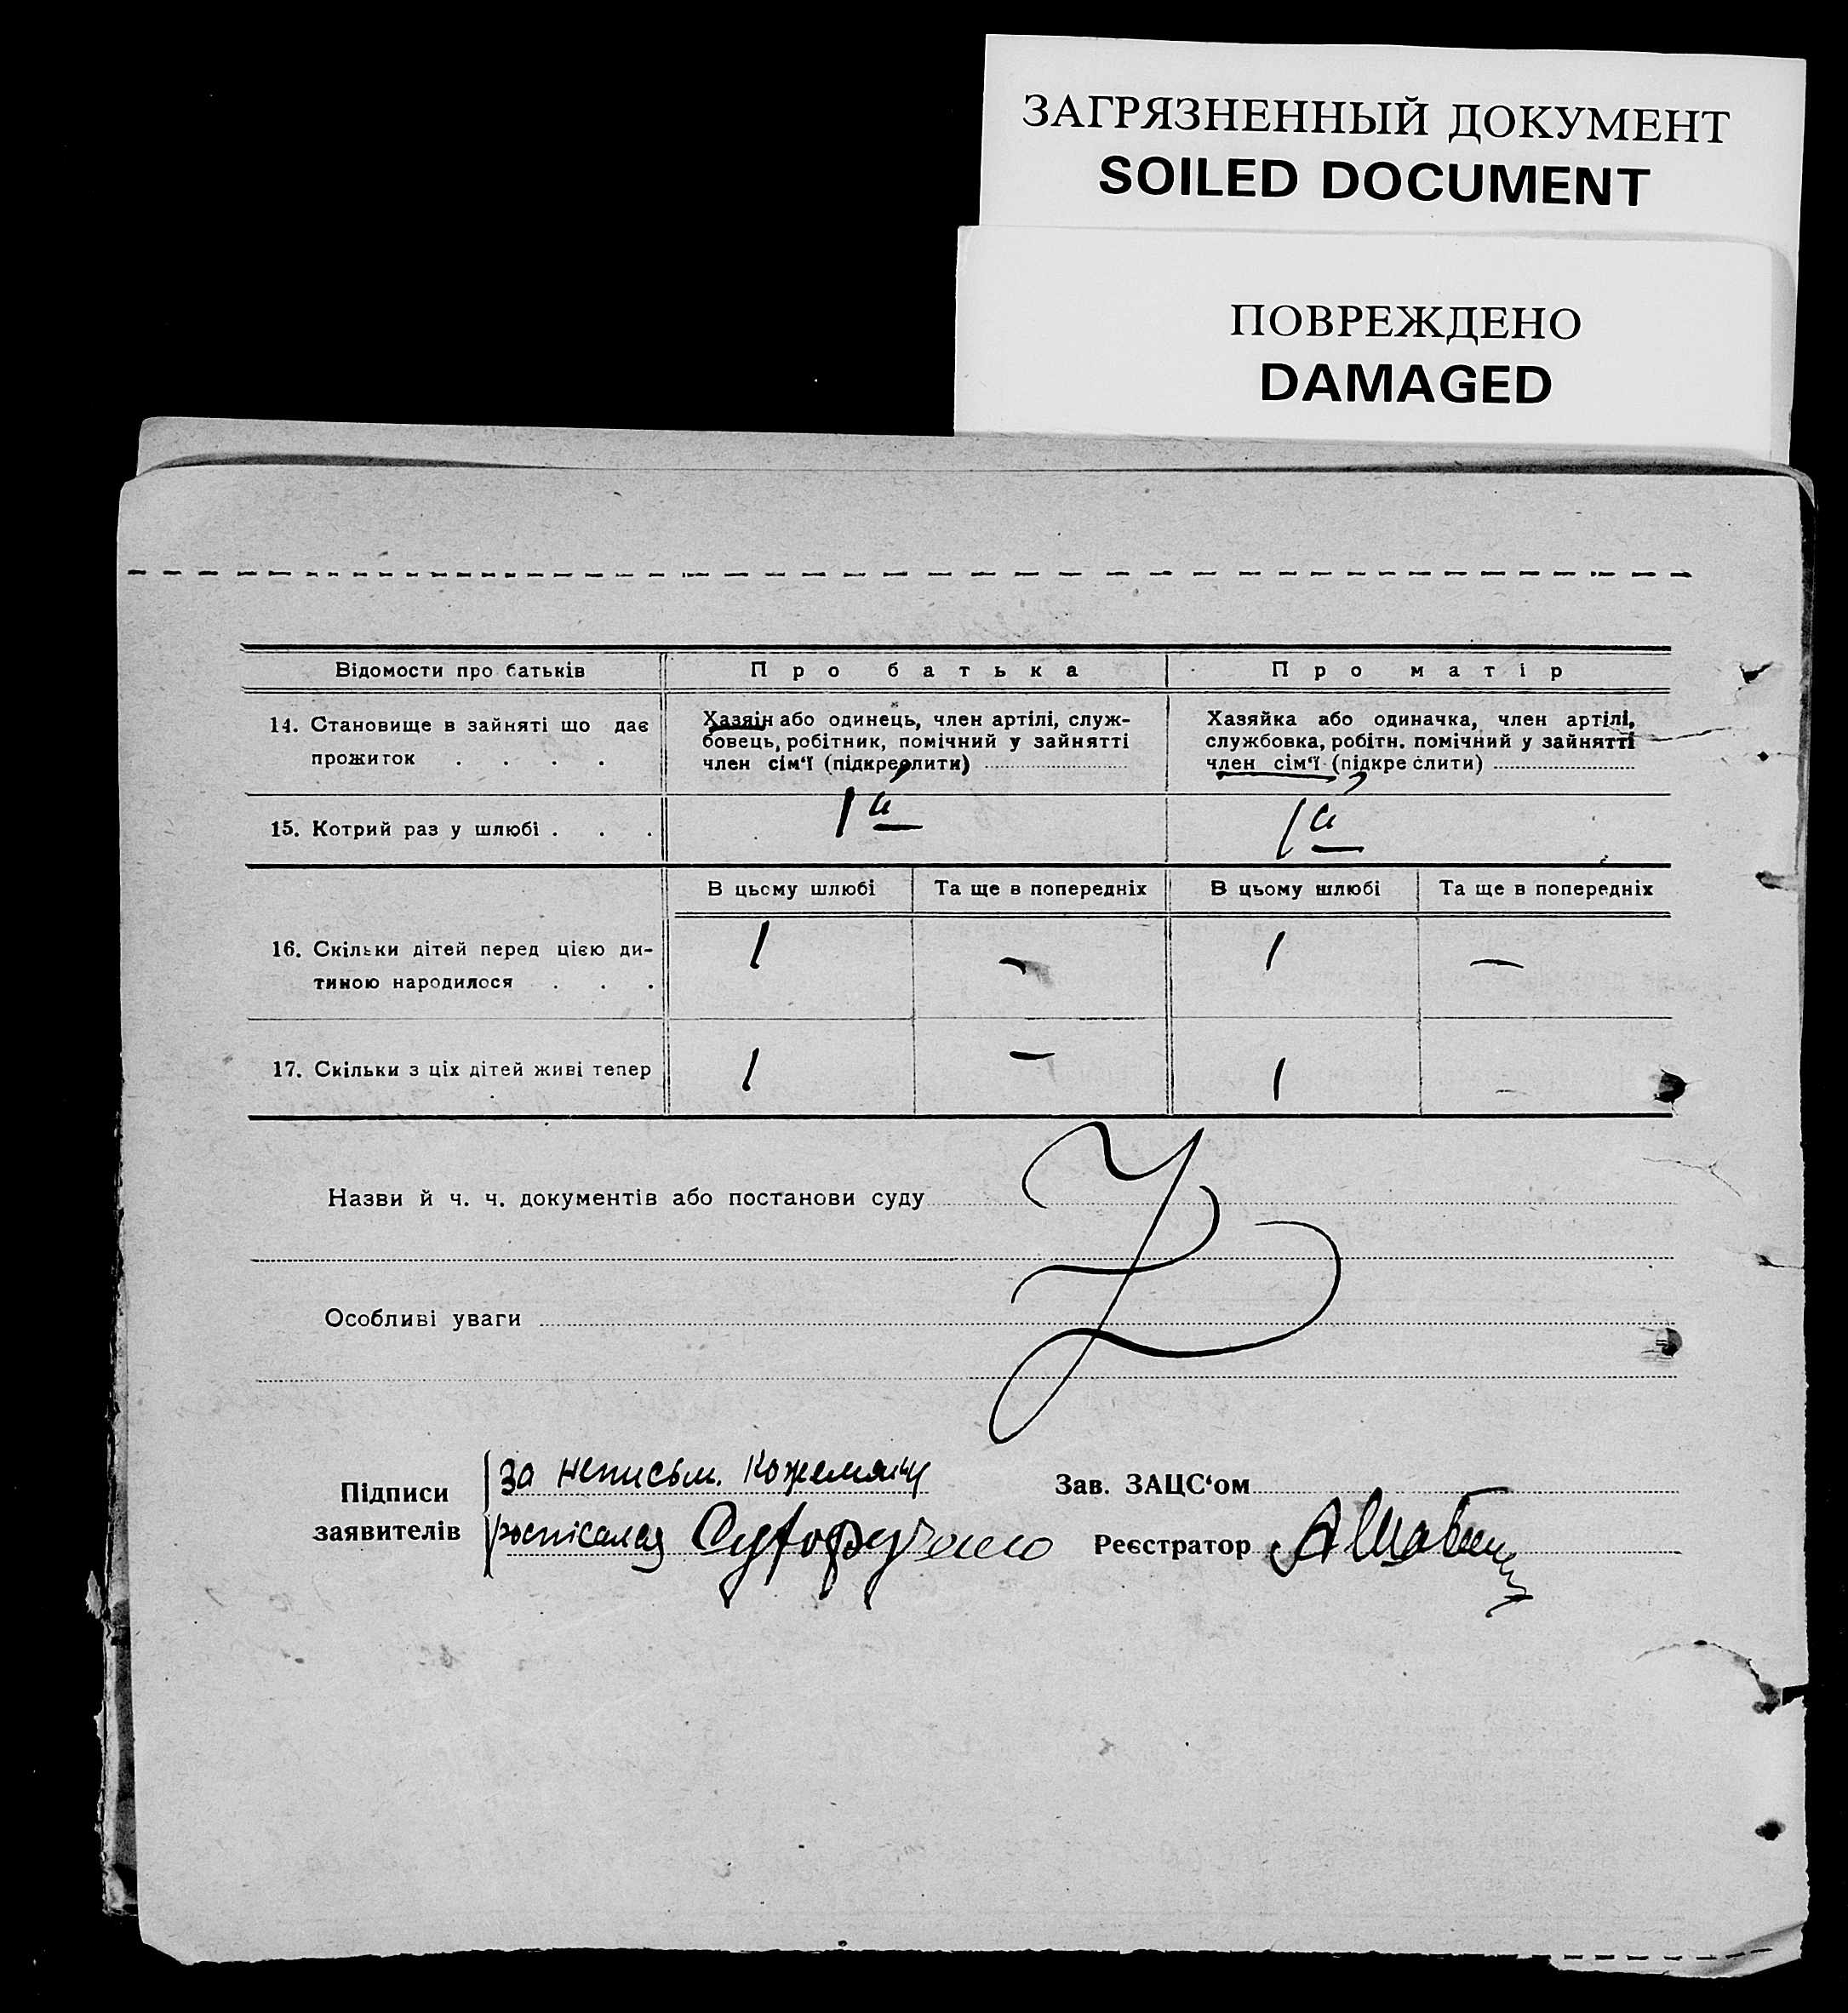 ЗАГРЯЗНЕННЫЙ ДОКУМЕНТ
SOILED DOCUMENT
ПОВРЕЖДЕНО
DAMAGED
Відомости про батьків Про батька Про матір
14. Становище в зайняті що дає прожиток . . . .
Хазяін або одинець, член артілі, служ-
бовець, робітник, помічний у зайнятті
член сім'ї (підкреслити)
Хазяйка або одиначка, член артілі,
службовка, робітн. помічний у зайнятті
член сім'ї (підкреслити)
15. Котрий раз у шлюбі . . . 1й 1й
В цьому шлюбі Та ще в попередніх В цьому шлюбі Та ще в попередніх
16. Скільки дітей перед цією ди-
тиною народилося . . . 1 — 1 —
17. Скільки з ціх дітей живі тепер 1 — 1 —
Назви й ч. ч. документів або постанови суду
Особливі уваги
Підписи
заявителів
за неписьм.
Зав. ЗАЦС'ом
Реєстратор